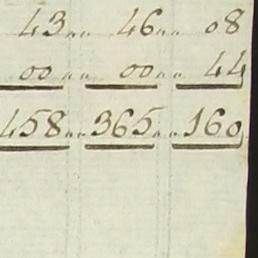 43 " 46 " 08
00 " 00 " 44
458 " 365 " 160